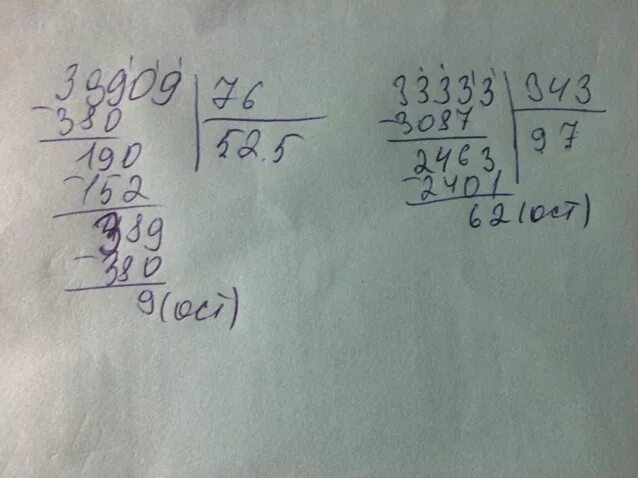 39909 76
- 380 52.5
190
- 152
389
- 380
9 (ост)
33333 343
- 3087 97
2463
- 2401
62 (ост)